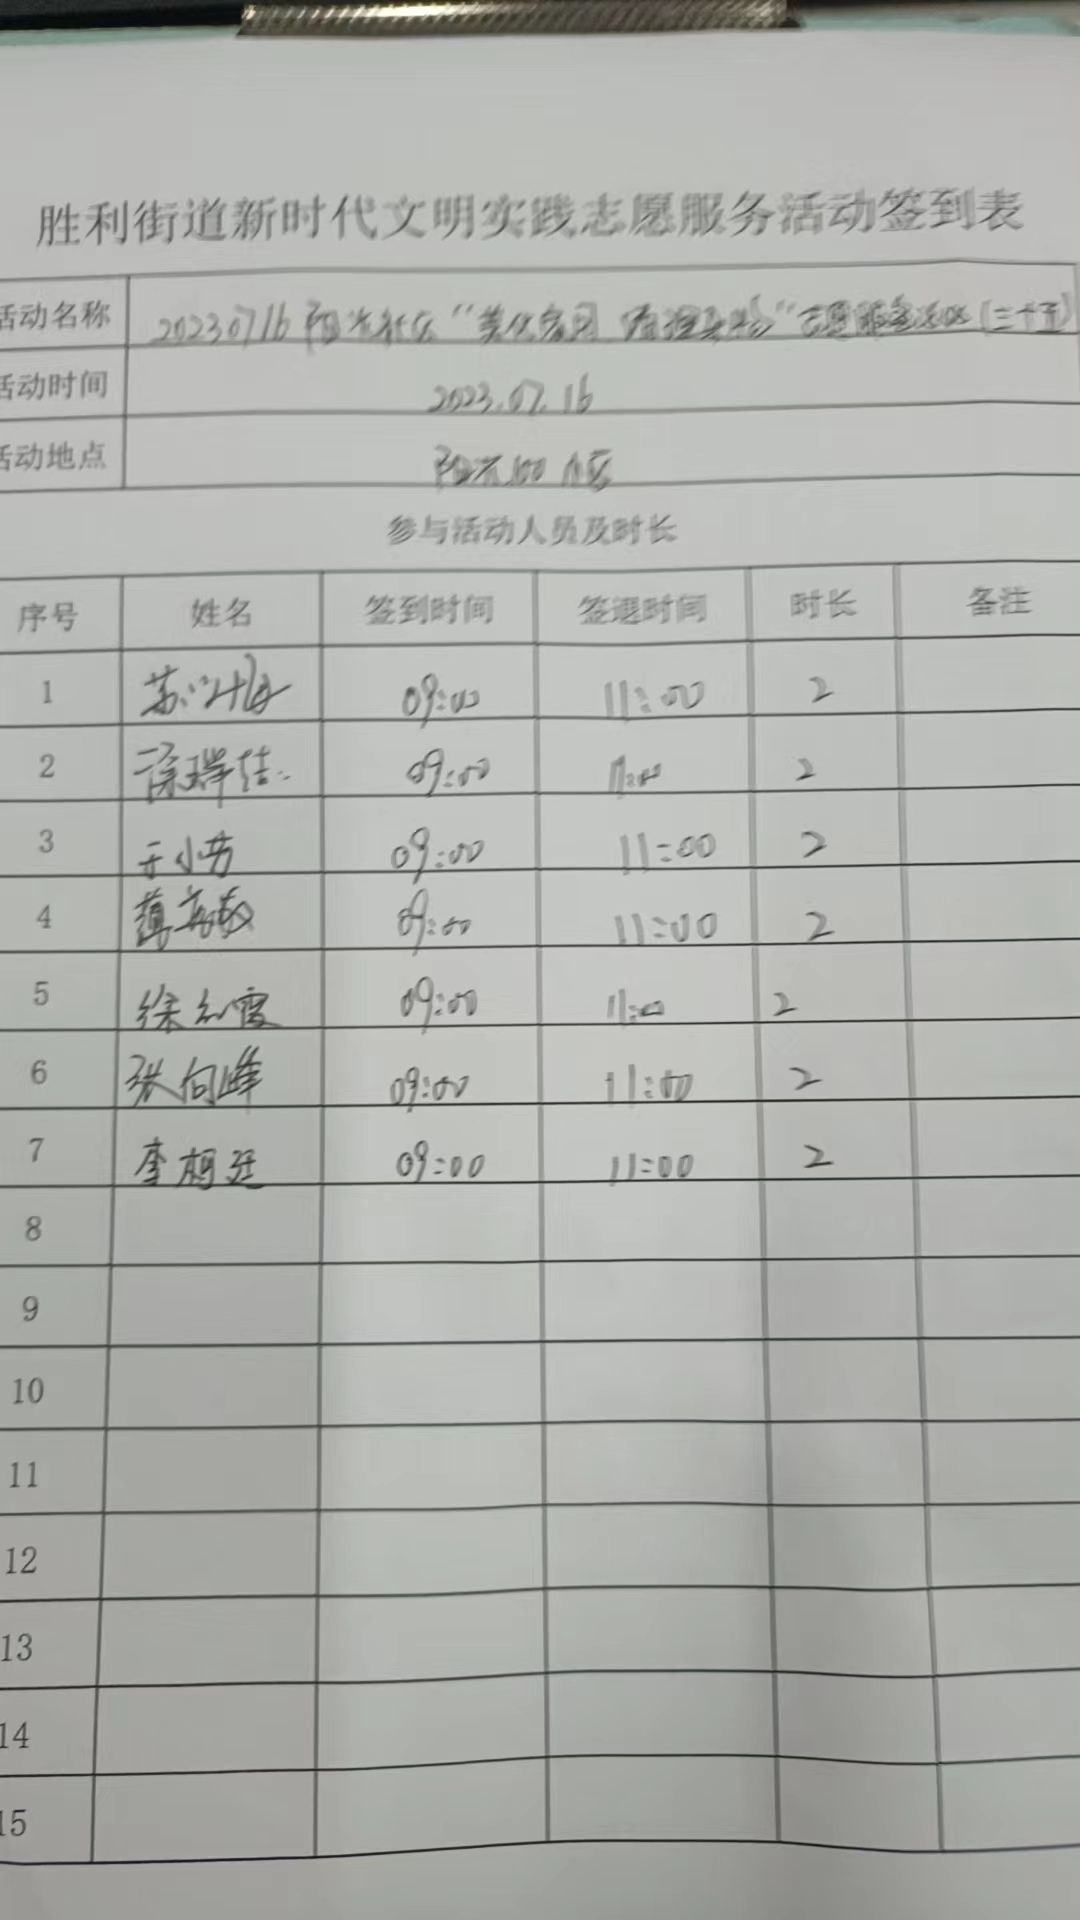 胜利街道新时代文明实践志愿服务活动签到表
活动名称 20230716 阳光社区“美化家园 清理杂物”志愿服务活动(三十五)
活动时间 2023.07.16
活动地点 阳光100小区
参与活动人员及时长
序号 姓名 签到时间 签退时间 时长 备注
1 09:00 11:00 2
2 徐瑞佳 09:00 11:00 2
3 于小芳 09:00 11:00 2
4 09:00 11:00 2
5 徐红霞 09:00 11:00 2
6 张向峰 09:00 11:00 2
7 李相廷 09:00 11:00 2
8
9
10
11
12
13
14
15